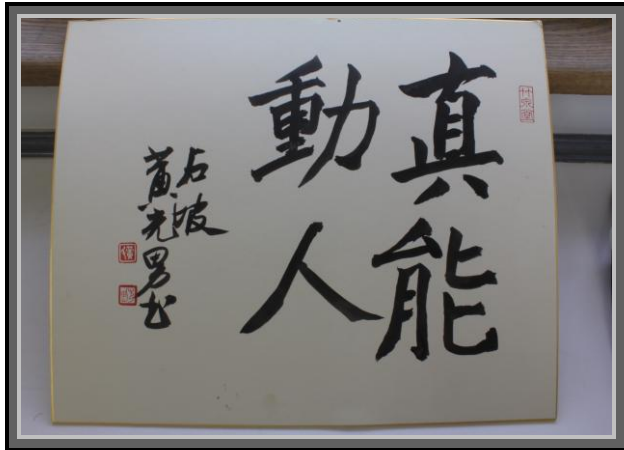 真能
動人
石坡
黃光男書